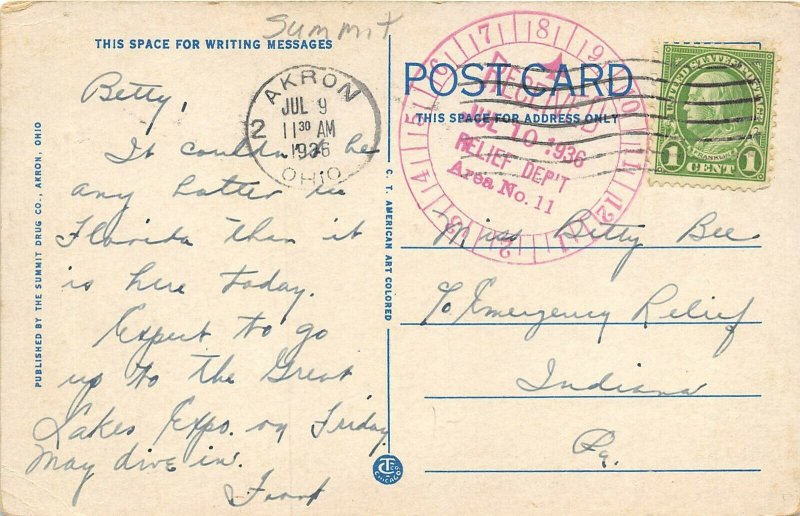 Summit
THIS SPACE FOR WRITING MESSAGES
POST CARD
THIS SPACE FOR ADDRESS ONLY
AKRON
JUL 9
11 30 AM
1936
OHIO
2
RECEIVED
JUL 10 1936
RELIEF DEP'T
Area No. 11
1 2 3 4 5 6 7 8 9 10 11 12 1 2 3 4 5 6 7 8 9
UNITED STATES POSTAGE
FRANKLIN
1 CENT 1
Betty,
It couldn't be
any hotter in
Florida than it
is here today.
Expect to go
up to the Great
Lakes Expo. on Friday
May dive in.
Miss Betty Bee
c/o Emergency Relief
Indiana
Pa.
PUBLISHED BY THE SUMMIT DRUG CO., AKRON, OHIO
C. T. AMERICAN ART COLORED
CHICAGO